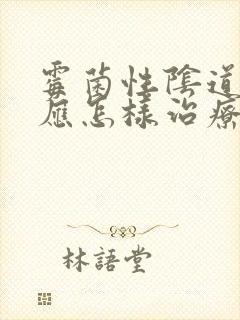 霉菌性陰道
應怎樣治療
林語堂